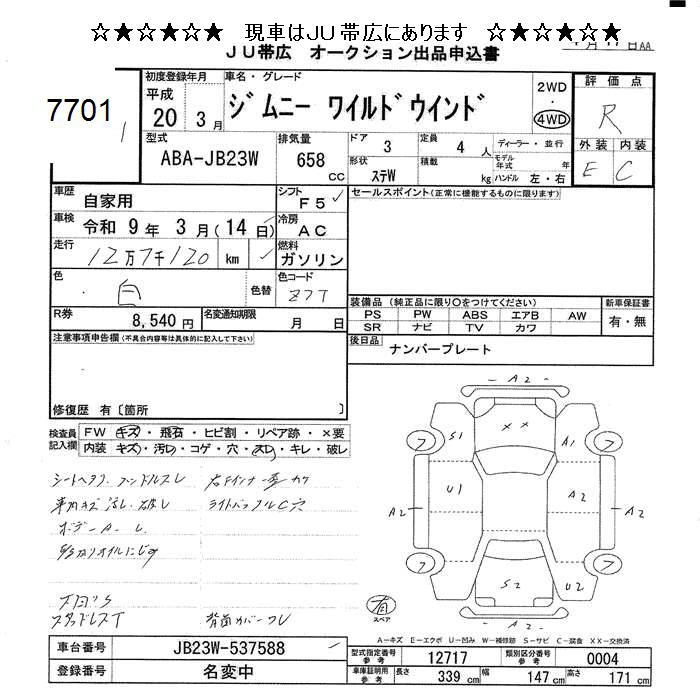 ☆★☆★☆★☆ 現車はJU帯広にあります ☆★☆★☆★☆
JU帯広 オークション出品申込書
7701
初度登録年月 平成 20 3月
車名・グレード
ジムニー ワイルドウインド
2WD ・ 4WD
評価点
R
外装 内装
E C
型式
ABA-JB23W
排気量
658 cc
ドア 3
定員 4 人
形状 ステW
積載 kg
ディーラー・並行
モデル年式 年
ハンドル 左・右
車歴
自家用
シフト F5
セールスポイント(正常に機能するものに限ります)
車検
令和 9 年 3 月(14 日)
冷房 AC
走行
12万7千120 km
燃料 ガソリン
色
白
色替
色コード
Z7T
装備品(純正品に限り○をつけてください)
PS PW ABS エアB AW
SR ナビ TV カワ
新車保証書
有・無
R券
8,540 円
名変通知期限
月 日
後日品 ナンバープレート
注意事項申告欄(不具合内容等は具体的に記入して下さい)
修復歴 有〔箇所 〕
検査員記入欄
FW キズ・飛石・ヒビ割・リペア跡・×要
内装 キズ・汚レ・コゲ・穴・スレ・キレ・破レ
車内キズ 汚レ 破レ
スタッドレスT
A2
S1
××
A1
フ
フ
A2
U1
A2
A2
フ
フ
S2
U2
A2
有
スペア
A-キズ E-エクボ U-凹み W-補修跡 S-サビ C-腐食 XX-交換済
車台番号 JB23W-537588
登録番号 名変中
型式指定番号 参考 12717
類別区分番号 参考 0004
車庫証明用 参考 長さ 339 cm 幅 147 cm 高さ 171 cm